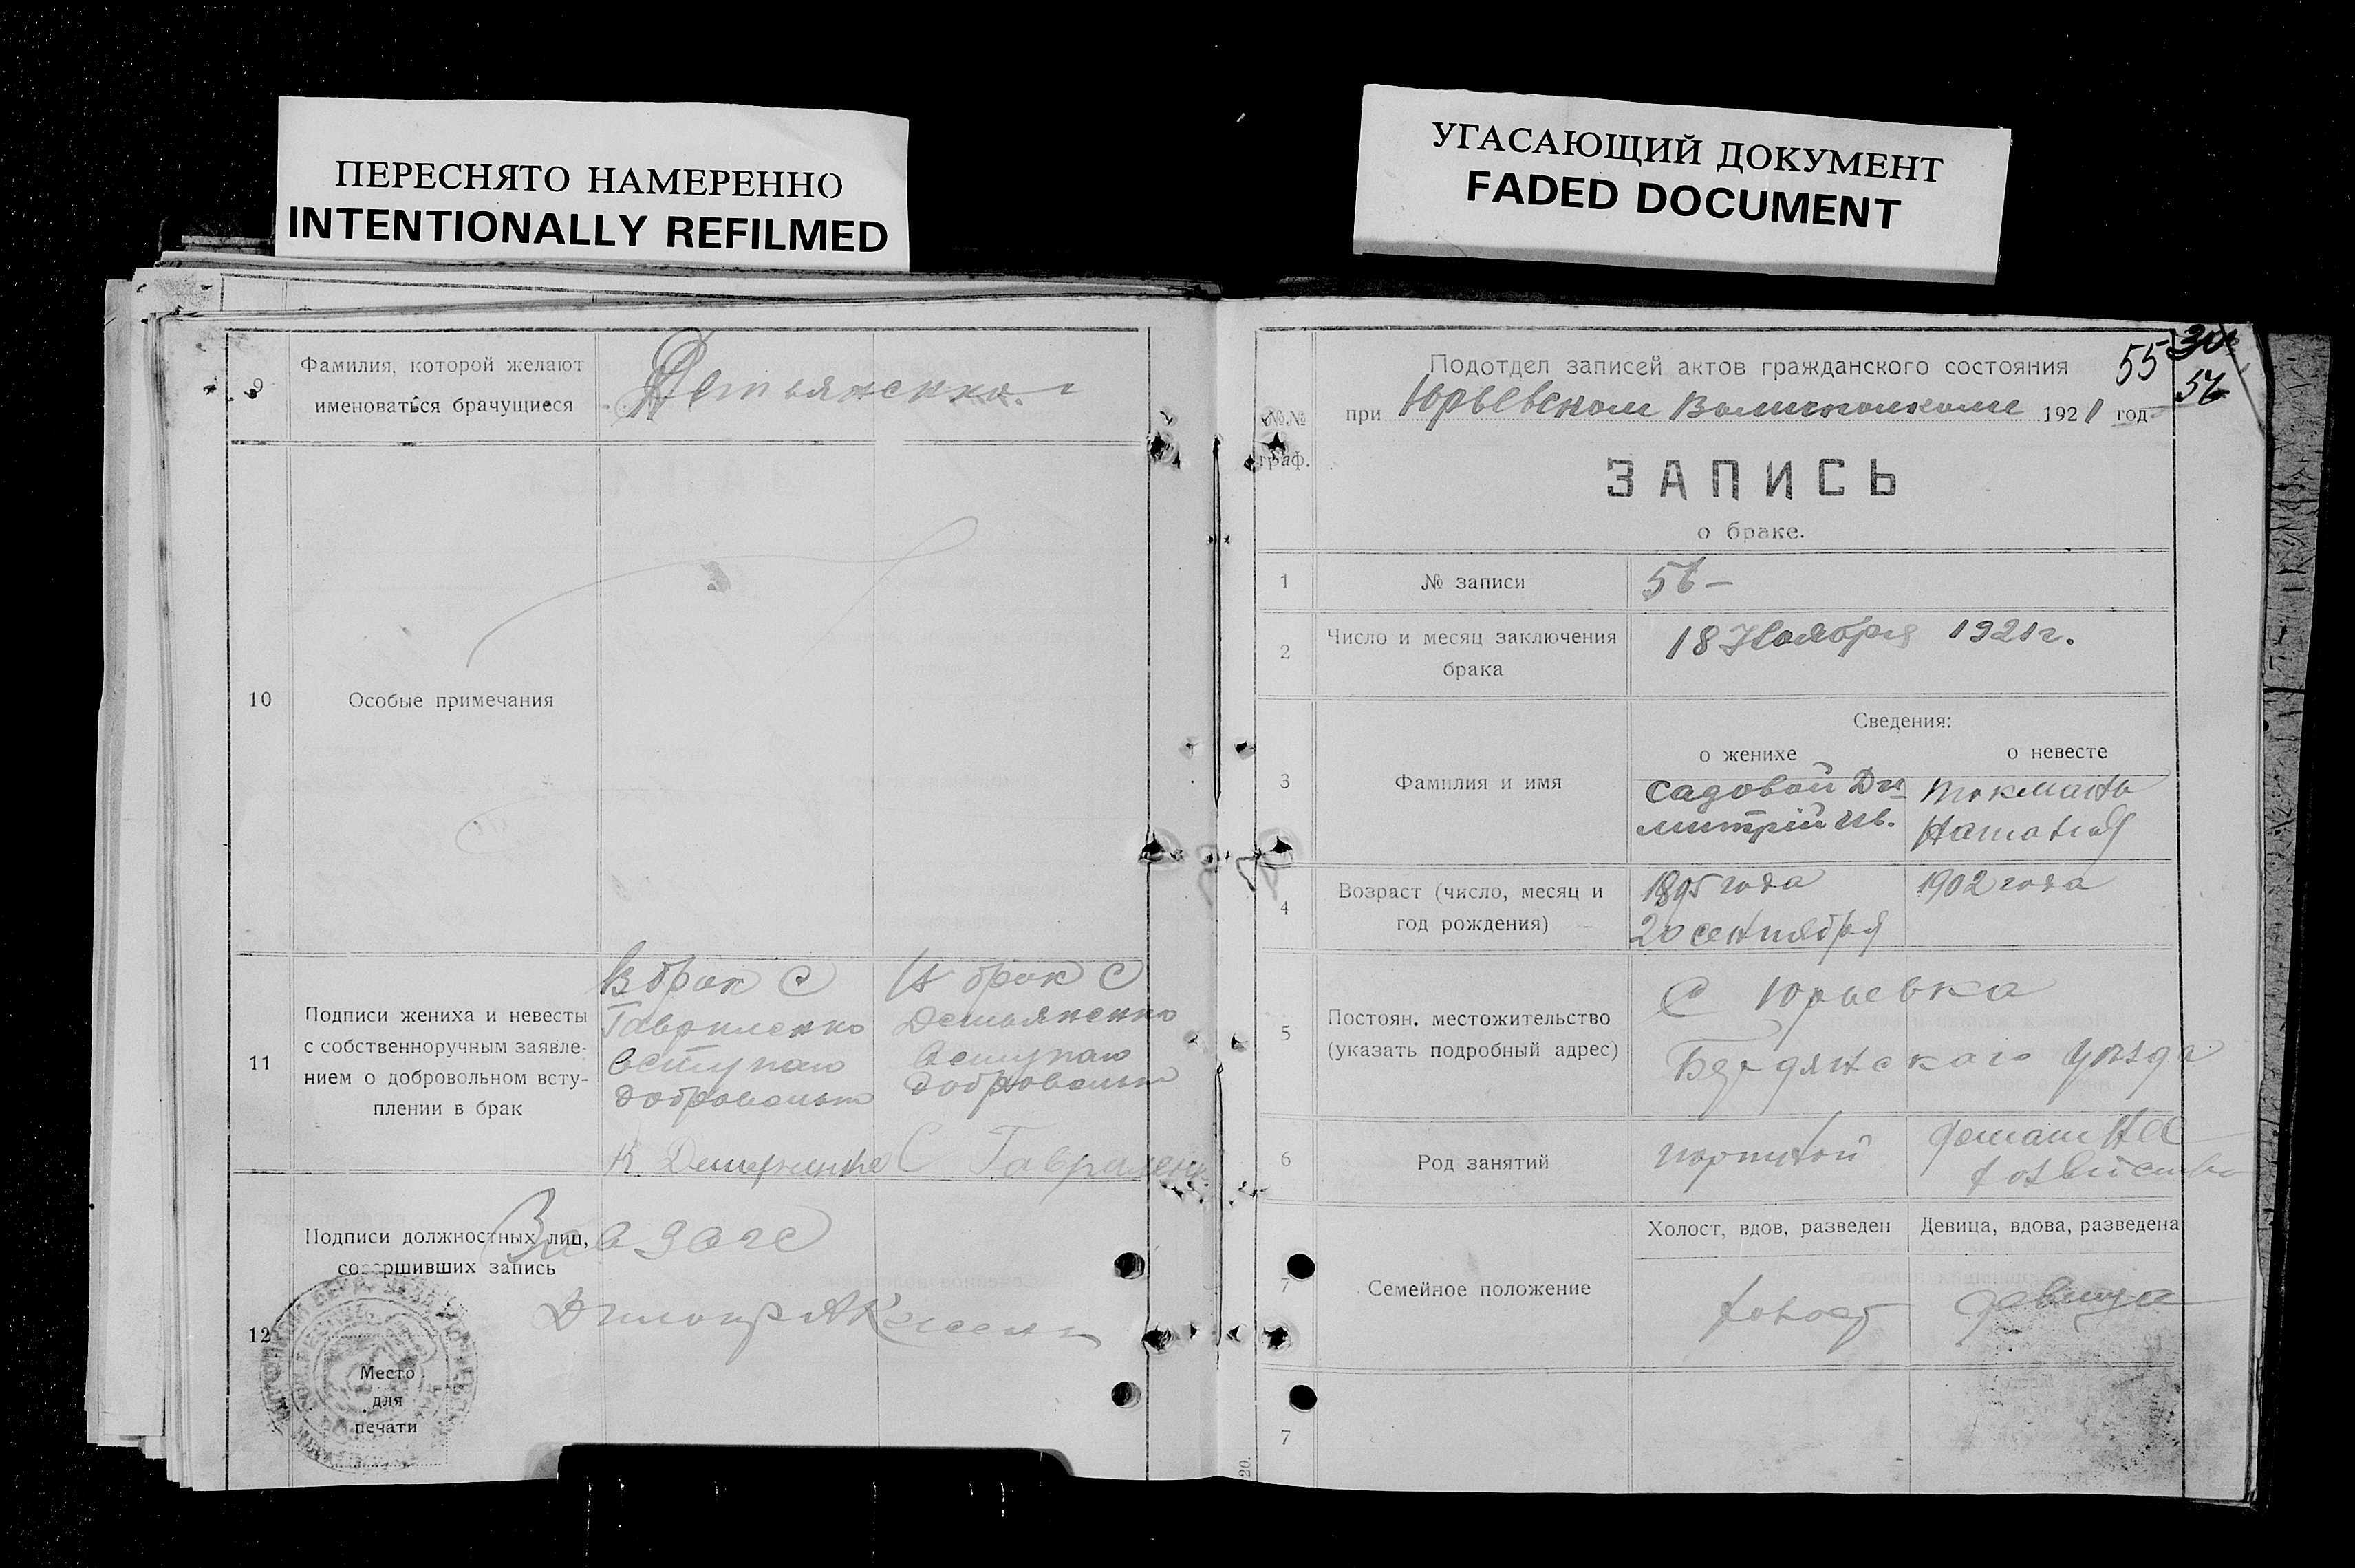 ПЕРЕСНЯТО НАМЕРЕННО
INTENTIONALLY REFILMED
УГАСАЮЩИЙ ДОКУМЕНТ
FADED DOCUMENT
9
Фамилия, которой желают
именоваться брачущиеся
10
Особые примечания
11
Подписи жениха и невесты
с собственноручным заявле-
нием о добровольном всту-
плении в брак
В брак С
Гавриленко
Вступаю
добровольно
В брак С
Демьяненко
Вступаю
добровольно
12
Подписи должностных лиц,
совершивших запись
Зав Загс
Место
для
печати
55
30
56
№№
граф.
Подотдел записей актов гражданского состояния
при Юрьевском Волисполкоме 1921 год
ЗАПИСЬ
о браке.
1
№ записи
56 –
2
Число и месяц заключения
брака
18 Ноября 1921 г.
3
Фамилия и имя
Сведения:
о женихе
о невесте
Садовой Ди
митрій Ив.
Токмань
Наталия
4
Возраст (число, месяц и
год рождения)
1895 года
20 сентября
1902 года
5
Постоян. местожительство
(указать подробный адрес)
С Юрьевка
Бердянского уезда
6
Род занятий
портной
домашна
7
Семейное положение
Холост, вдов, разведен
Девица, вдова, разведена
холост
девица
7
20.